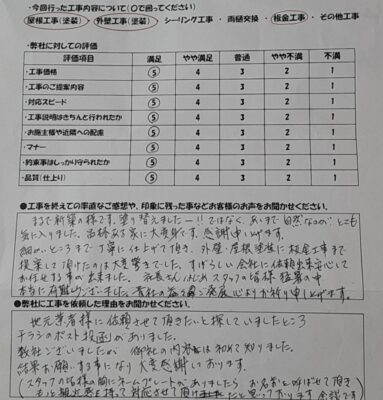 ・今回行った工事内容について(〇で囲ってください)
屋根工事(塗装)・外壁工事(塗装)・シーリング工事・雨樋交換・板金工事・その他工事
・弊社に対しての評価
評価項目 満足 やや満足 普通 やや不満 不満
・工事価格 5 4 3 2 1
・工事のご提案内容 5 4 3 2 1
・対応スピード 5 4 3 2 1
・工事説明はきちんと行われたか 5 4 3 2 1
・お施主様や近隣への配慮 5 4 3 2 1
・マナー 5 4 3 2 1
・約束事はしっかり守られたか 5 4 3 2 1
・品質(仕上り) 5 4 3 2 1
●工事を終えての率直なご感想や、印象に残った事などお客様のお声をお聞かせください。
まるで新築の様です。塗り替えました―!!ではなく、あくまで自然なのがとても
気に入りました。品格ある家に大変身です。感謝申し上げます。
細かいところまで丁寧に仕上げて頂き、外壁・屋根塗装に板金工事まで
提案して頂けたのは大変驚きでした。すばらしい会社に依頼出来安心して
お任せする事が出来ました。社長さんはじめスタッフの皆様猛暑の中
本当に有難うございました。貴社の益々の発展心よりお祈り申し上げます。
●弊社に工事を依頼した理由をお聞かせください。
地元業者様に依頼させて頂きたいと探していましたところ
チラシのポスト投函がありました。
数社ございましたが 御社の内容は初めて知りました。
結果お願いする事になり大変感謝しております。
(スタッフの皆様の胸にネームプレートがありましたら お名前を呼ばせて頂き
もっと親近感を持って対応させて頂けましたと思っております 余談です)